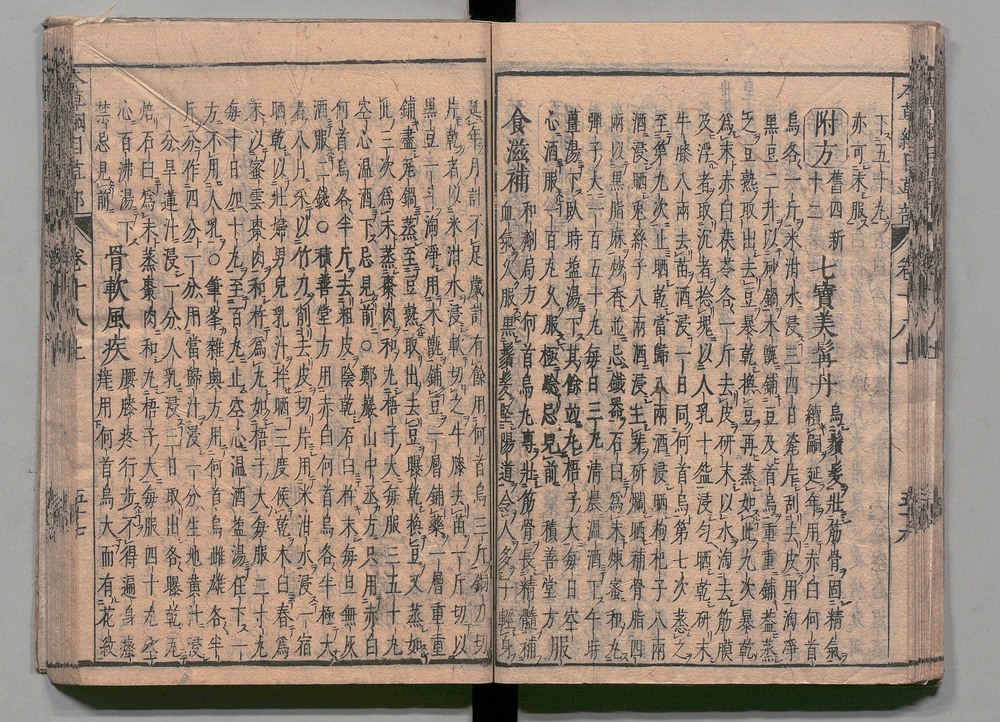 下五十丸
亦可末服
附方舊四新十三 七寶美髯丹烏鬚髮壯筋骨固精氣續嗣延年用赤白何首
烏各一斤米泔水浸三四日瓷片刮去皮用淘淨
黑豆二升以砂鍋木甑鋪豆及首烏重重鋪蓋蒸
之豆熟取出去豆暴乾換豆再蒸如此九次暴乾
爲末赤白茯苓各一斤去皮研末以水淘去筋膜
及浮者取沉者捻塊以人乳十盌浸勻晒乾研末
牛膝八兩去苗酒浸一日同何首烏第七次蒸之
至第九次止晒乾當歸八兩酒浸晒枸杞子八兩
酒浸晒兔絲子八兩酒浸生芽研爛晒補骨脂四
兩以黑脂麻炒香並忌鐵器石臼爲末煉蜜和丸
彈子大一百五十丸每日三丸清晨溫酒下午時
薑湯下臥時鹽湯下其餘並丸梧子大每日空
心酒服一百丸久服極驗忌見前 積善堂方 服
食滋補和劑局方何首烏丸專壯筋骨長精髓補血氣久服黑鬚髮堅陽道令人多子輕身
延年月計不足歲計有餘用何首烏三斤銅刀切
片乾者以米泔水浸軟切之牛膝去苗一斤切以
黑豆一斗淘淨用木甑鋪豆一層鋪藥一層重重
鋪盡瓦鍋蒸至豆熟取出去豆曝乾換豆又蒸如
此三次爲末蒸棗肉和丸梧子大每服三五十丸
空心溫酒下忌見前○鄭巖山中丞方只用赤白
何首烏各半斤去粗皮陰乾石臼杵末每旦無灰
酒服二錢○積善堂方用赤白何首烏各半極大
者八月采以竹刀削去皮切片用米泔水浸一宿
晒乾以壯婦男兒乳汁拌晒三度候乾木臼舂爲
末以密雲棗肉和杵爲丸如梧子大每服二十丸
每十日加十丸至百丸止空心溫酒鹽湯任下一
方不用人乳○筆峯雜興方用何首烏雌雄各半
斤分作四分一分用當歸汁浸一分生地黃汁浸
一分旱蓮汁浸一分人乳浸三日取出各曝乾瓦
焙石臼爲末蒸棗肉和丸梧子大每服四十丸空
心百沸湯下禁忌見前 骨軟風疾腰膝疼行步不得遍身瘙癢用何首烏大而有花紋